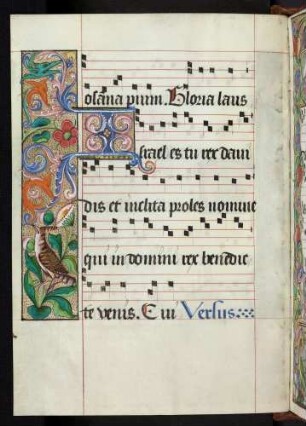 osana pium. Gloria laus
Israel es tu rex daui
dis et inclita proles nomine
qui in domini rex benedic
te venis. C ui Versus